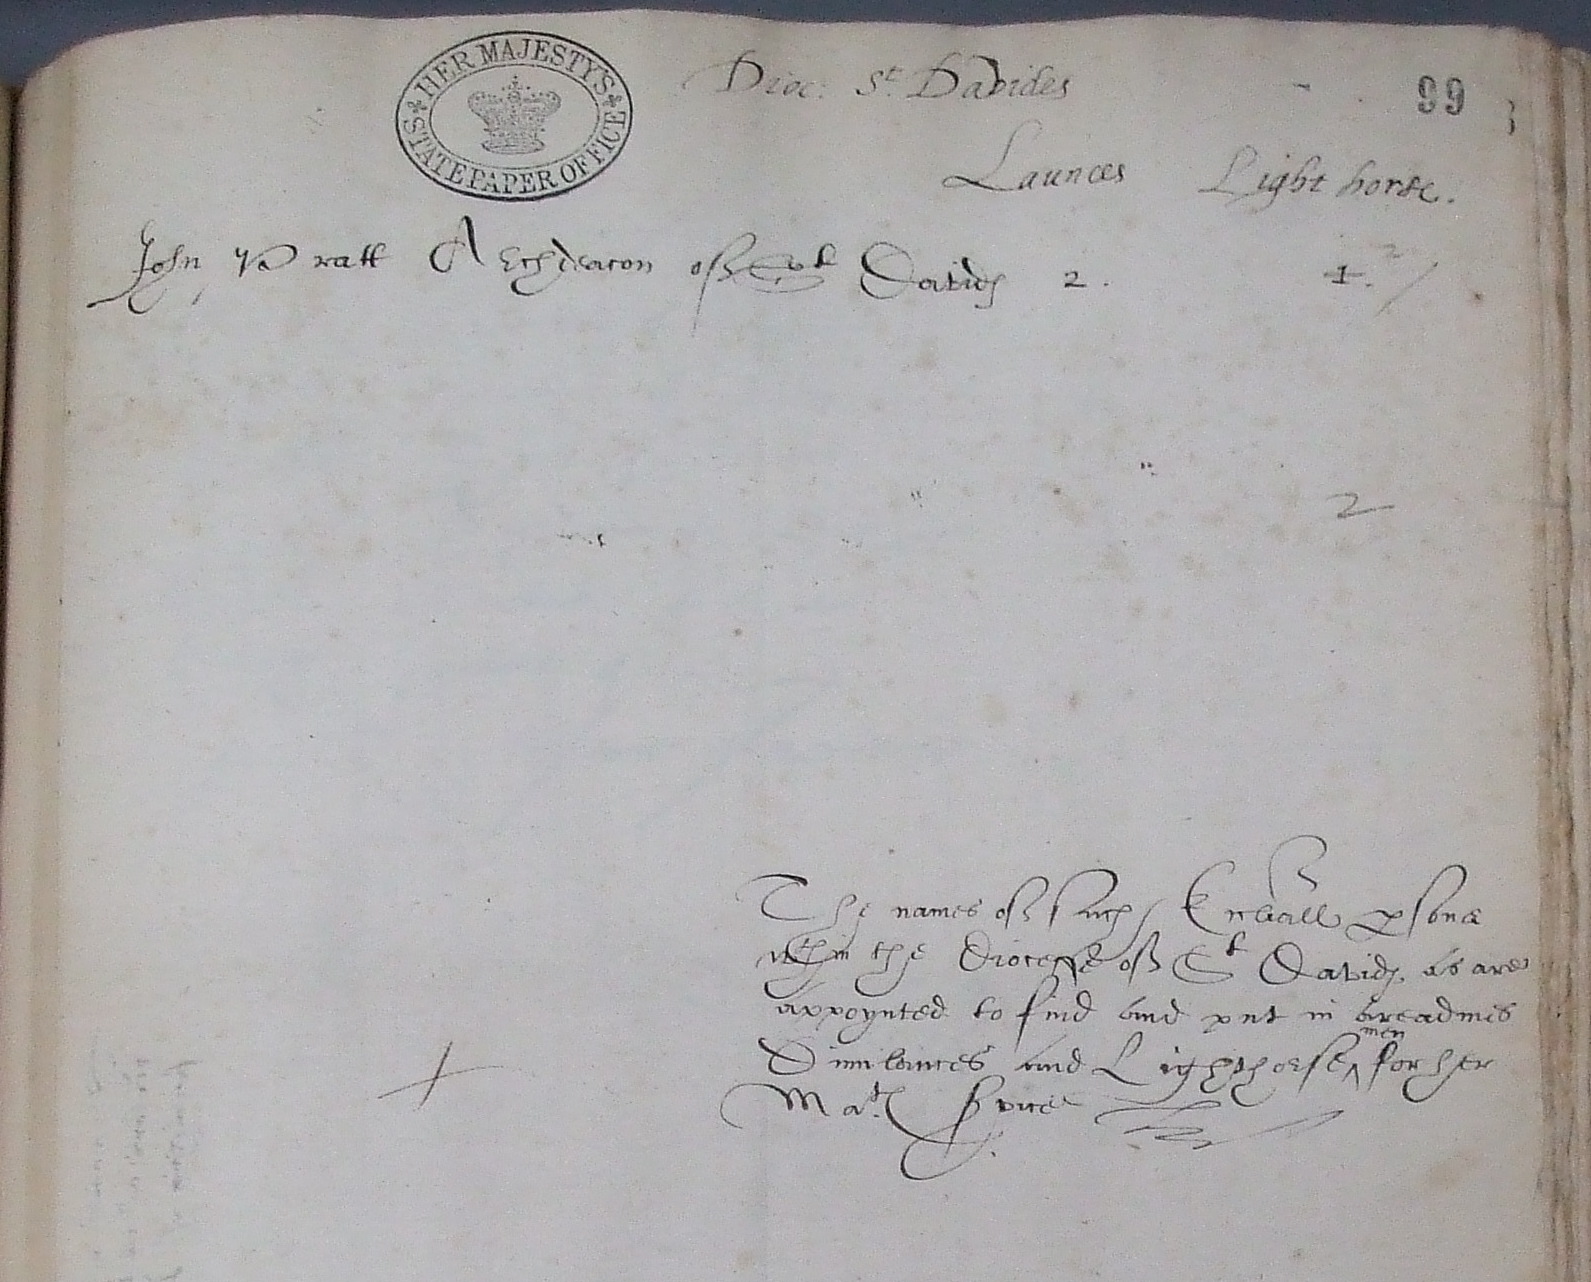 HER MAJESTYS STATE PAPER OFFICE
Dioc: St. Davides
99
Launces Light horse.
John Pratt Archdeacon off St Davids 2. 1. 2
2
The names off such
wthin the Diocesse off St Davids as are
appoynted to find and put in areadines
Dimilances and Lighthorse^men for her
Mats Svice